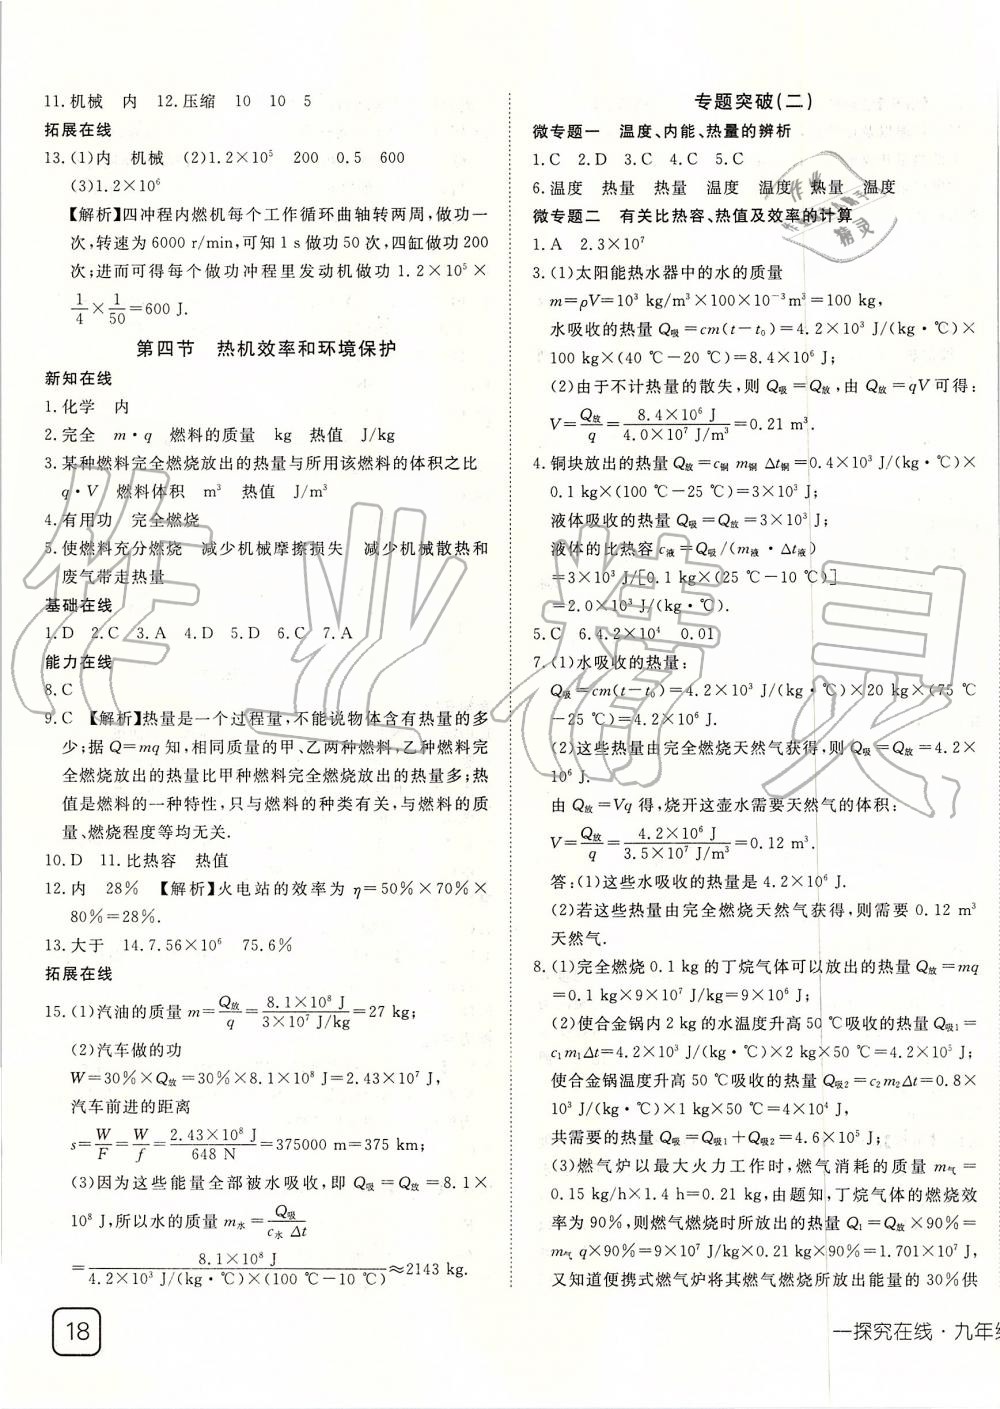 11.机械　内　12.压缩　10　10　5
拓展在线
13.(1)内　机械　(2)1.2×10⁵　200　0.5　600
(3)1.2×10⁶
【解析】四冲程内燃机每个工作循环曲轴转两周,做功一
次,转速为6000 r/min,可知1 s做功50次,四缸做功200
次;进而可得每个做功冲程里发动机做功1.2×10⁵×
1/4×1/50=600 J.
第四节　热机效率和环境保护
新知在线
1.化学　内
2.完全　m·q　燃料的质量　kg　热值　J/kg
3.某种燃料完全燃烧放出的热量与所用该燃料的体积之比
q·V　燃料体积　m³　热值　J/m³
4.有用功　完全燃烧
5.使燃料充分燃烧　减少机械摩擦损失　减少机械散热和
废气带走热量
基础在线
1.D　2.C　3.A　4.D　5.D　6.C　7.A
能力在线
8.C
9.C　【解析】热量是一个过程量,不能说物体含有热量的多
少;据Q=mq知,相同质量的甲、乙两种燃料,乙种燃料完
全燃烧放出的热量比甲种燃料完全燃烧放出的热量多;热
值是燃料的一种特性,只与燃料的种类有关,与燃料的质
量、燃烧程度等均无关.
10.D　11.比热容　热值
12.内　28%　【解析】火电站的效率为η=50%×70%×
80%=28%.
13.大于　14.7.56×10⁶　75.6%
拓展在线
15.(1)汽油的质量m=Q放/q=8.1×10⁸ J/3×10⁷ J/kg=27 kg;
(2)汽车做的功
W=30%×Q放=30%×8.1×10⁸ J=2.43×10⁸ J,
汽车前进的距离
s=W/F=W/f=2.43×10⁸ J/648 N=375000 m=375 km;
(3)因为这些能量全部被水吸收,即Q吸=Q放=8.1×
10⁸ J,所以水的质量m水=Q吸/c水 Δt
=8.1×10⁸ J/4.2×10³ J/(kg·℃)×(100 ℃-10 ℃)≈2143 kg.
18
专题突破(二)
微专题一　温度、内能、热量的辨析
1.C　2.D　3.C　4.C　5.C
6.温度　热量　热量　温度　温度　热量　温度
微专题二　有关比热容、热值及效率的计算
1.A　2.3×10⁷
3.(1)太阳能热水器中的水的质量
m=ρV=10³ kg/m³×100×10⁻³m³=100 kg,
水吸收的热量Q吸=cm(t-t₀)=4.2×10³ J/(kg·℃)×
100 kg×(40 ℃-20 ℃)=8.4×10⁶ J;
(2)由于不计热量的散失,则Q吸=Q放,由Q放=qV可得:
V=Q放/q=8.4×10⁶ J/4.0×10⁷ J/m³=0.21 m³.
4.铜块放出的热量Q放=c铜 m铜 Δt铜=0.4×10³ J/(kg·℃)×
0.1 kg×(100 ℃-25 ℃)=3×10³ J;
液体吸收的热量Q吸=Q放=3×10³ J;
液体的比热容c液=Q吸/(m液·Δt液)
=3×10³ J/[0.1 kg×(25 ℃-10 ℃)]
=2.0×10³ J/(kg·℃).
5.C　6.4.2×10⁴　0.01
7.(1)水吸收的热量:
Q吸=cm(t-t₀)=4.2×10³ J/(kg·℃)×20 kg×(75 ℃
-25 ℃)=4.2×10⁶ J.
(2)这些热量由完全燃烧天然气获得,则Q吸=Q放=4.2×
10⁶ J.
由Q放=Vq得,烧开这壶水需要天然气的体积:
V=Q放/q=4.2×10⁶ J/3.5×10⁷ J/m³=0.12 m³.
答:(1)这些水吸收的热量是4.2×10⁶ J.
(2)若这些热量由完全燃烧天然气获得,则需要0.12 m³
天然气.
8.(1)完全燃烧0.1 kg的丁烷气体可以放出的热量Q放=mq
=0.1 kg×9×10⁷ J/kg=9×10⁶ J;
(2)使合金锅内2 kg的水温度升高50 ℃吸收的热量Q吸1=
c₁m₁Δt=4.2×10³ J/(kg·℃)×2 kg×50 ℃=4.2×10⁵ J;
使合金锅温度升高50 ℃吸收的热量Q吸2=c₂m₂Δt=0.8×
10³ J/(kg·℃)×1 kg×50 ℃=4×10⁴ J,
共需要的热量Q吸=Q吸1+Q吸2=4.6×10⁵ J;
(3)燃气炉以最大火力工作时,燃气消耗的质量m气=
0.15 kg/h×1.4 h=0.21 kg,由题知,丁烷气体的燃烧效
率为90%,则燃气燃烧时所放出的热量Q₁=Q放×90%=
m气 q×90%=9×10⁷ J/kg×0.21 kg×90%=1.701×10⁷ J,
又知道便携式燃气炉将其燃气燃烧所放出能量的30%供
一探究在线·九年
作业精灵